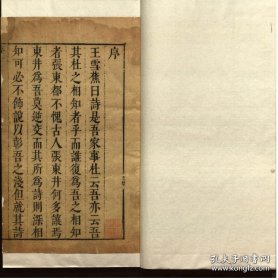 序
王雪蕉曰詩是吾家事杜云吾亦云吾
其杜之相知者乎而誰復為吾之相知
者張東都不愧古人張東井何多讓焉
東井為吾莫逆交而其所為詩則深相
知可必不飾說以彰吾之淺但就其詩
孔夫子旧书网